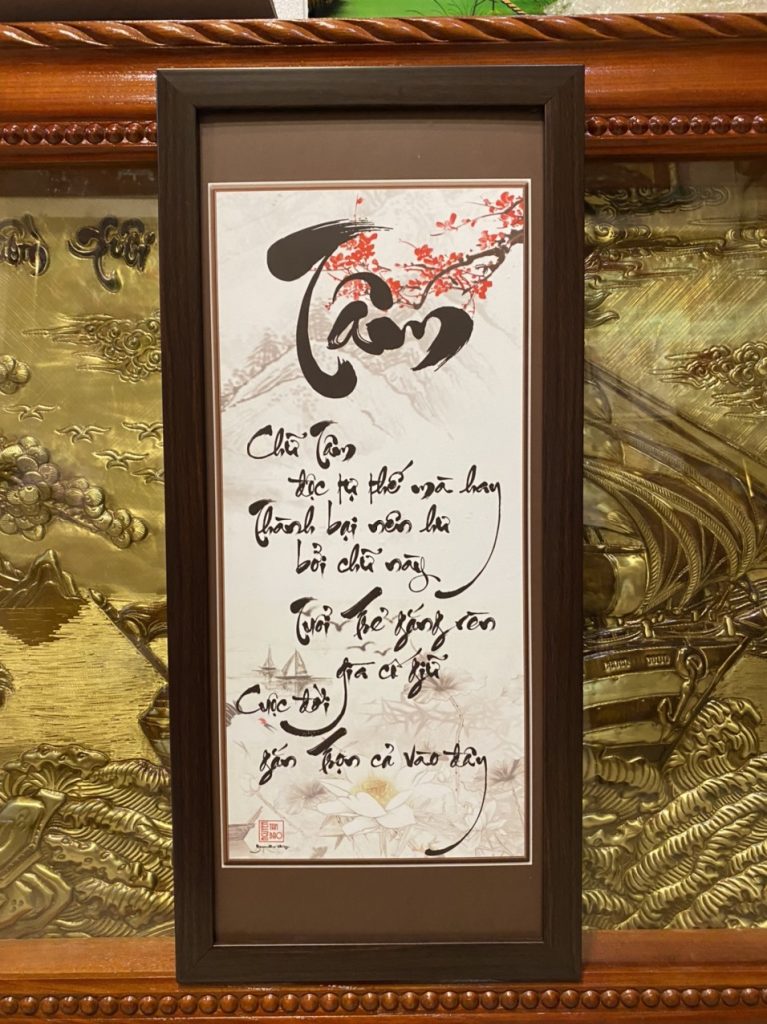 Xuôi
Tâm
Chữ Tâm
độc tự thế mà hay
Thành bại nên hư
bởi chữ này
Tuổi Trẻ gắng rèn
già cố giữ
Cuộc đời
gắn Trọn cả vào đây
TAM
BAO